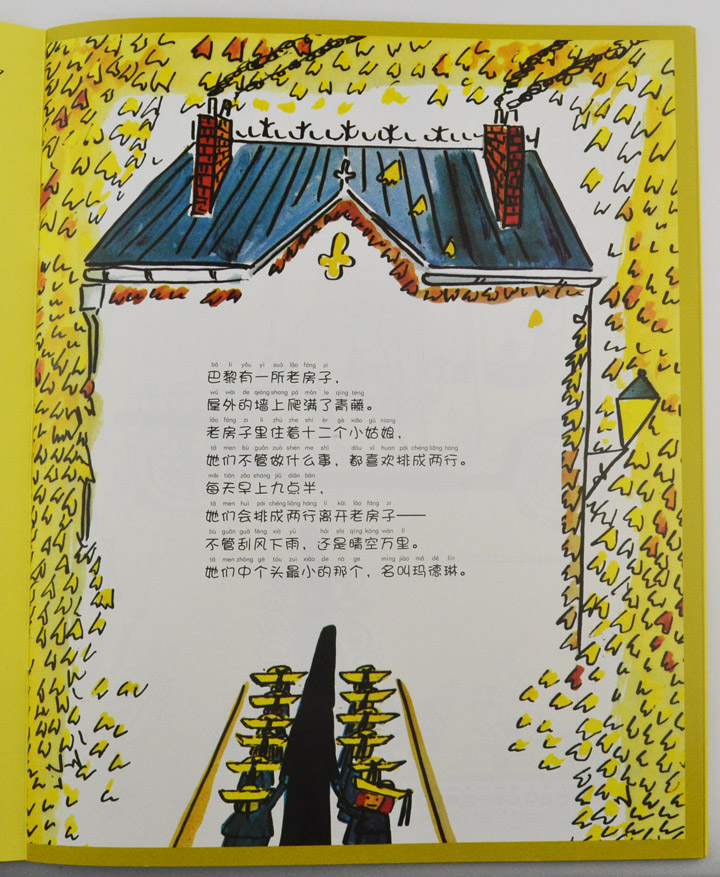 bā lí yǒu yì suǒ lǎo fáng zi
巴黎有一所老房子，
wū wài de qiáng shang pá mǎn le qīng téng
屋外的墙上爬满了青藤。
lǎo fáng zi li zhù zhe shí èr gè xiǎo gū niang
老房子里住着十二个小姑娘，
tā men bù guǎn zuò shén me shì dōu xǐ huan pái chéng liǎng háng
她们不管做什么事，都喜欢排成两行。
měi tiān zǎo shang jiǔ diǎn bàn
每天早上九点半，
tā men huì pái chéng liǎng háng lí kāi lǎo fáng zi
她们会排成两行离开老房子——
bù guǎn guā fēng xià yǔ hái shi qíng kōng wàn lǐ
不管刮风下雨，还是晴空万里。
tā men zhōng gè tóu zuì xiǎo de nà ge míng jiào mǎ dé lín
她们中个头最小的那个，名叫玛德琳。